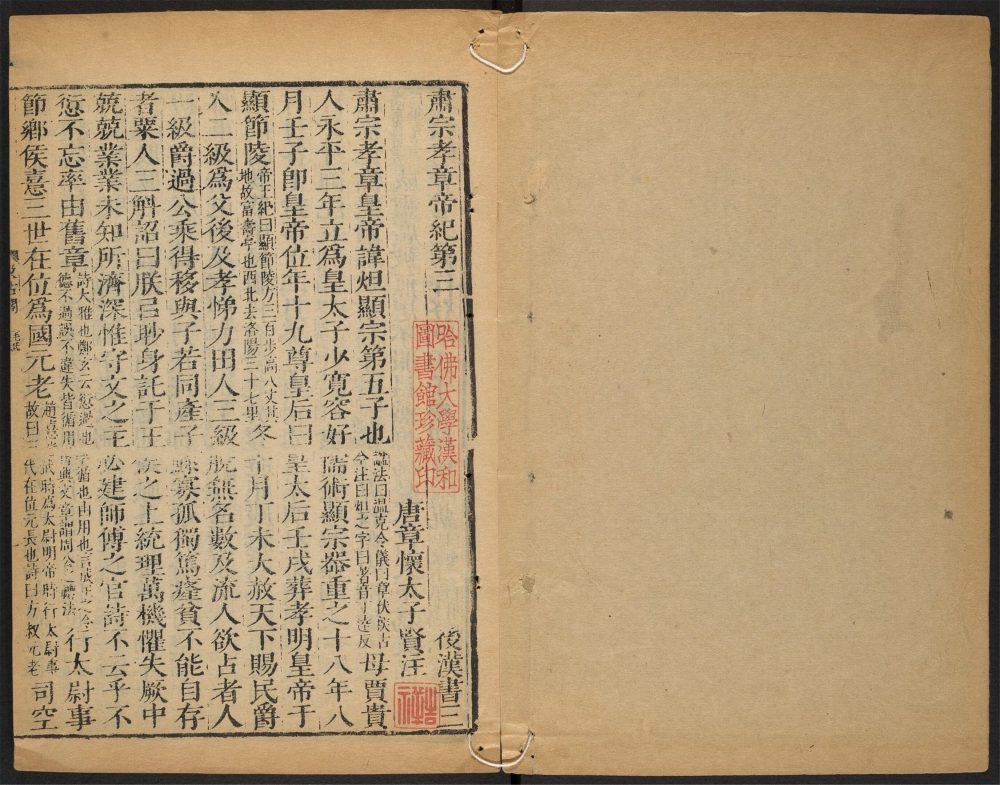 肅宗孝章帝紀第三 後漢書三
唐章懷太子賢注
肅宗孝章皇帝諱炟顯宗第五子也諡法曰溫克令儀曰章伏侯古今注曰炟之字曰著音丁達反母賈貴
人永平三年立爲皇太子少寬容好儒術顯宗器重之十八年八
月壬子卽皇帝位年十九尊皇后曰皇太后壬戌葬孝明皇帝于
顯節陵帝王紀曰顯節陵方三百步高八丈其地故富壽亭也西北去洛陽三十七里冬十月丁未大赦天下賜民爵
人二級爲父後及孝悌力田人三級脫無名數及流人欲占者人
一級爵過公乘得移與子若同產子鰥寡孤獨篤癃貧不能自存
者粟人三斛詔曰朕㠯眇身託于王侯之上統理萬機懼失厥中
兢兢業業未知所濟深惟守文之主必建師傅之官詩不云乎不
愆不忘率由舊章詩大雅也鄭玄云愆過也率循也由用也言成王之令德不過誤不違失皆循用舊典文章謂周公之禮法行太尉事
節鄉侯憙三世在位爲國元老趙憙光武時爲太尉明帝時行太尉事故曰三代在位元長也詩曰方叔元老司空
哈佛大學漢和
圖書館珍藏印